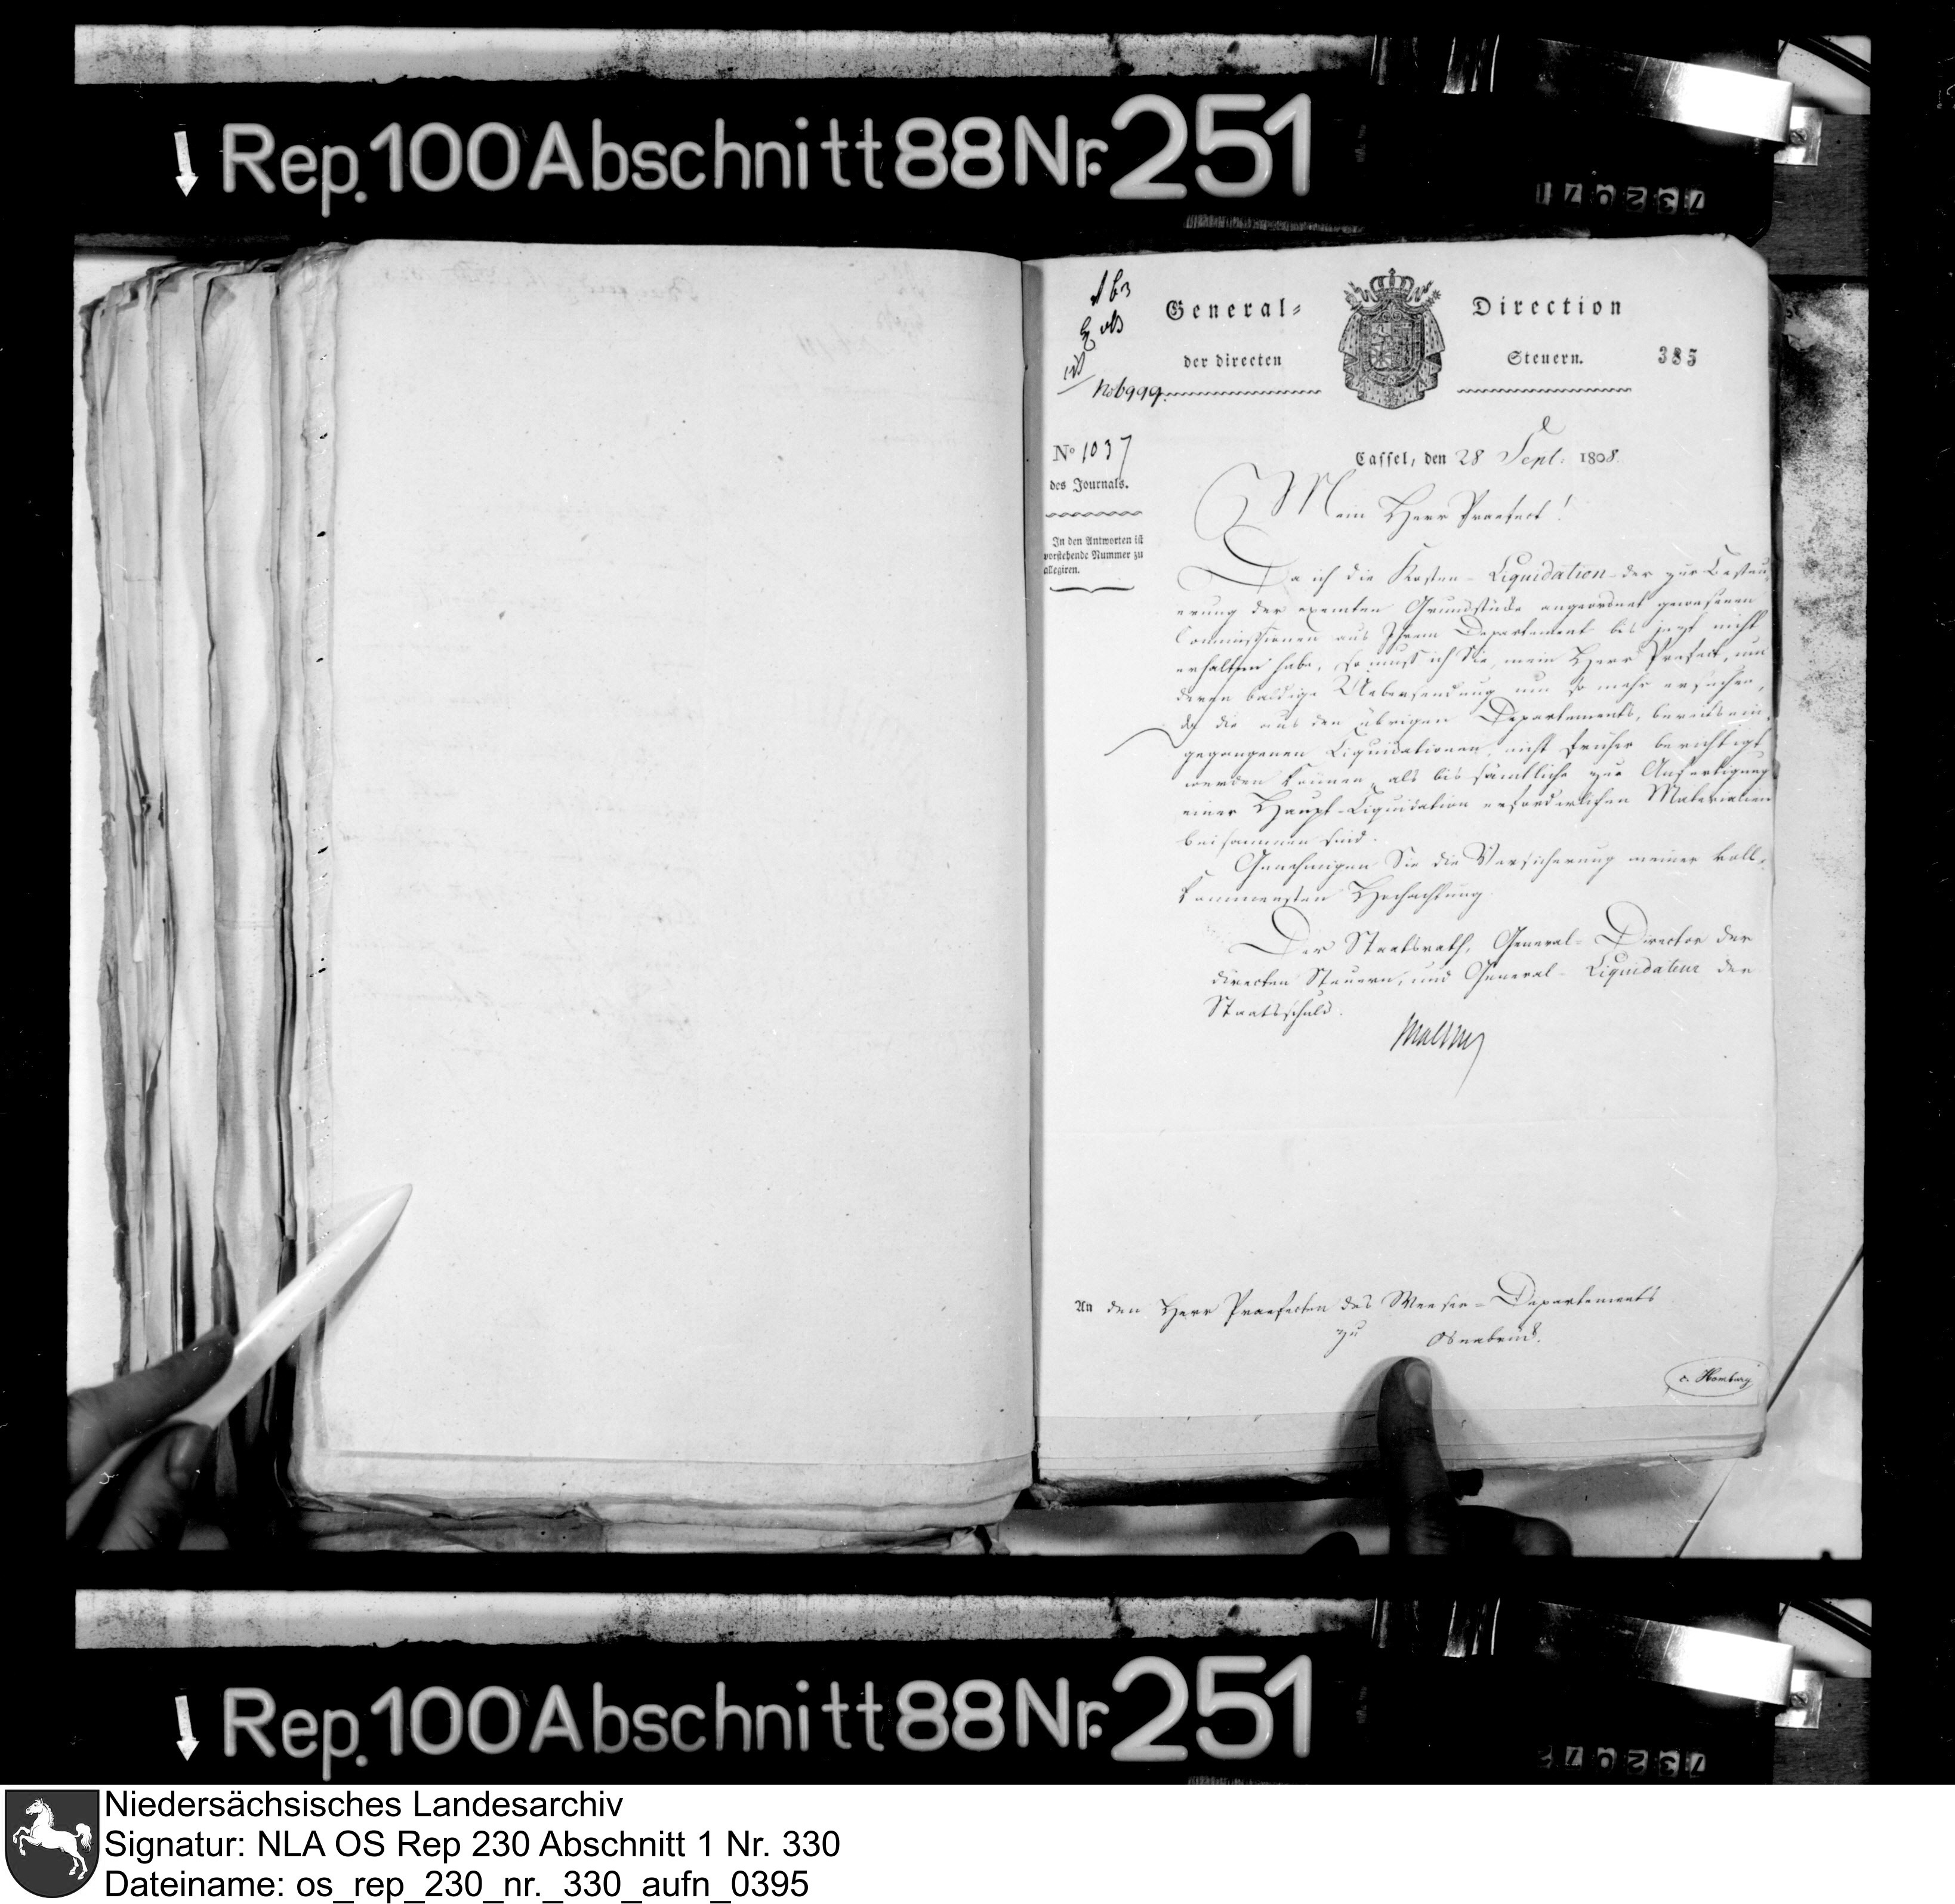 Rep. 100 Abschnitt 88 Nr. 251
General- Direction
der directen Steuern. 385
No 6999.
No 1037
des Journals.
In den Antworten ist
vorstehende Nummer zu
allegiren.
Cassel, den 28 Sept: 1808.
Mein Herr Praefect!
Da ich die Kosten-Liquidation der zur Besteu-
erung der exemten Grundstücke angeordnet gewesenen
Commissionen aus Ihrem Departement bis jezt nicht
erhalten habe, so muß ich Sie, mein Herr Prefect, um
deren baldige Uebersendung um so mehr ersuchen,
da die aus den übrigen Departements, bereits ein-
gegangenen Liquidationen nicht früher berichtigt
werden können, als bis sämtliche zur Anfertigung
einer Haupt-Liquidation erforderlichen Materialien
beisammen sind.
Genehmigen Sie die Versicherung meiner voll-
kommensten Hochachtung.
Der Staatsrath, General-Director der
directen Steuern, und General-Liquidateur der
Staatsschuld.
Malchus
An den Herr Praefecten des Weser-Departements
zu Osnabrück.
c. Homburg
Rep. 100 Abschnitt 88 Nr. 251
Niedersächsisches Landesarchiv
Signatur: NLA OS Rep 230 Abschnitt 1 Nr. 330
Dateiname: os_rep_230_nr._330_aufn_0395